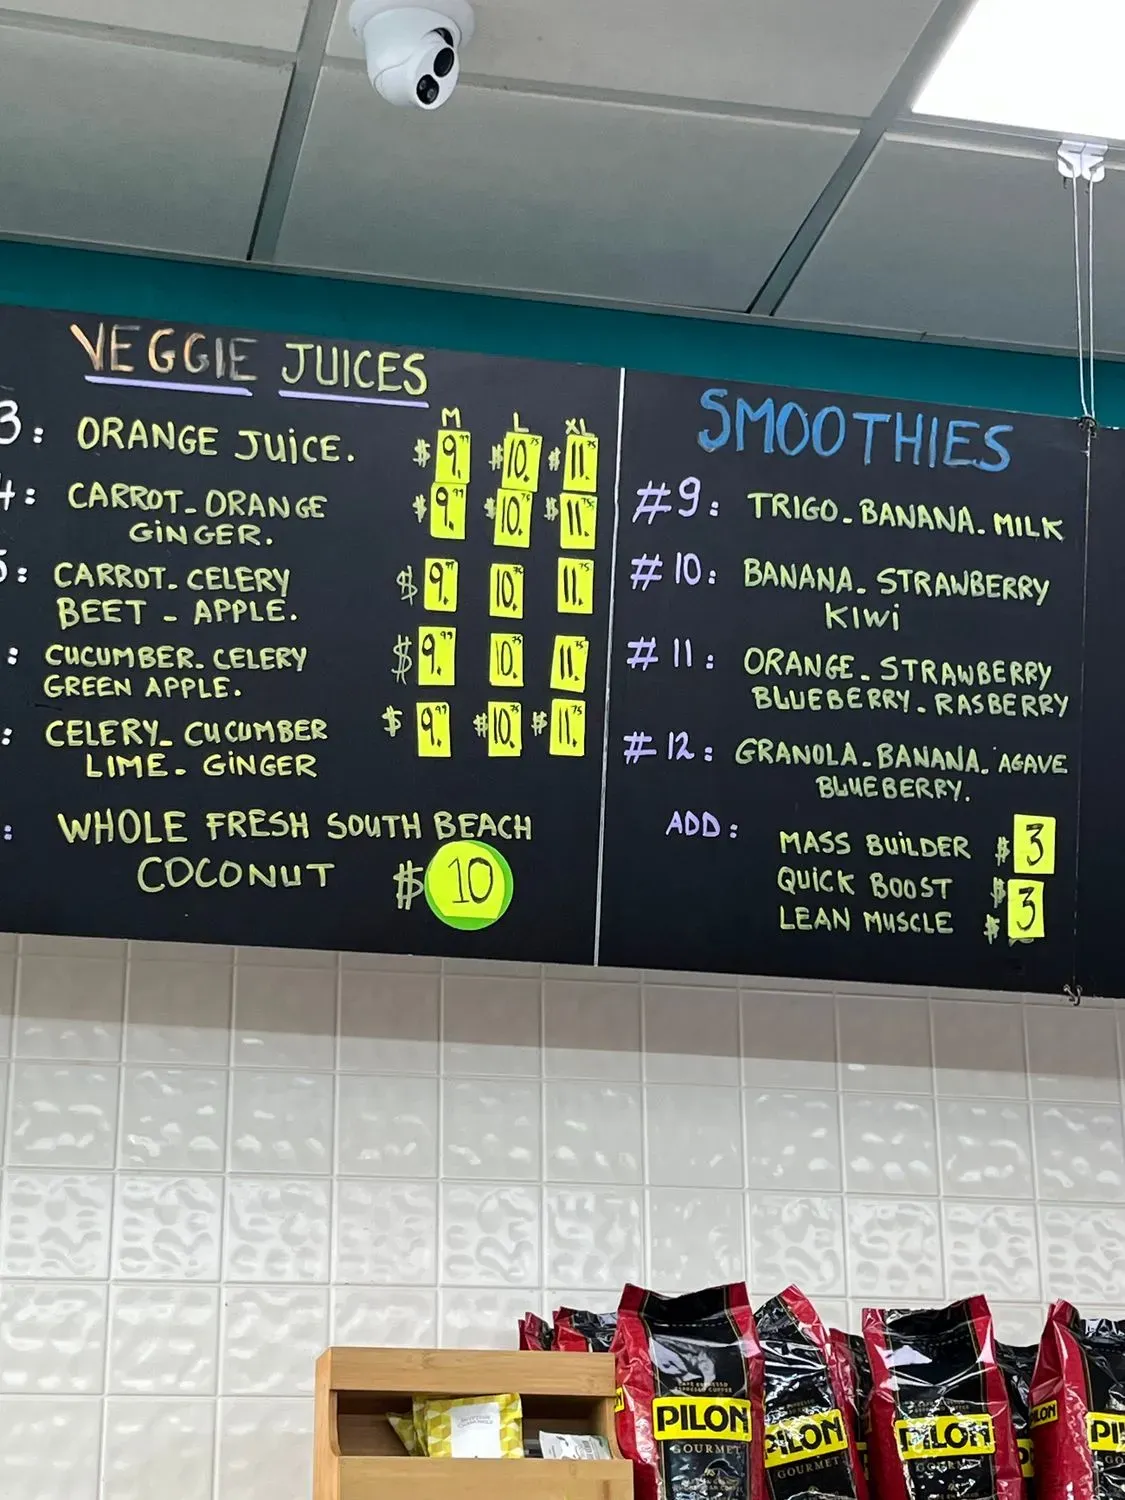 VEGGIE JUICES
M L XL
3: ORANGE JUICE. $ 9.99 $ 10.75 $ 11.75
4: CARROT_ORANGE $ 9.99 $ 10.75 $ 11.75
GINGER.
5: CARROT_CELERY $ 9.99 10.75 11.75
BEET - APPLE.
: CUCUMBER_CELERY $ 9.99 10.75 11.75
GREEN APPLE.
: CELERY_CUCUMBER $ 9.99 $ 10.75 $ 11.75
LIME_GINGER
: WHOLE FRESH SOUTH BEACH
COCONUT $ 10
SMOOTHIES
#9: TRIGO_BANANA_MILK
#10: BANANA_STRAWBERRY
KIWI
#11: ORANGE_STRAWBERRY
BLUEBERRY_RASBERRY
#12: GRANOLA_BANANA. AGAVE
BLUEBERRY.
ADD: MASS BUILDER $ 3
QUICK BOOST $
LEAN MUSCLE $ 3
PILON
GOURMET
PILON
GOURMET
PILON
GOURMET
PILON